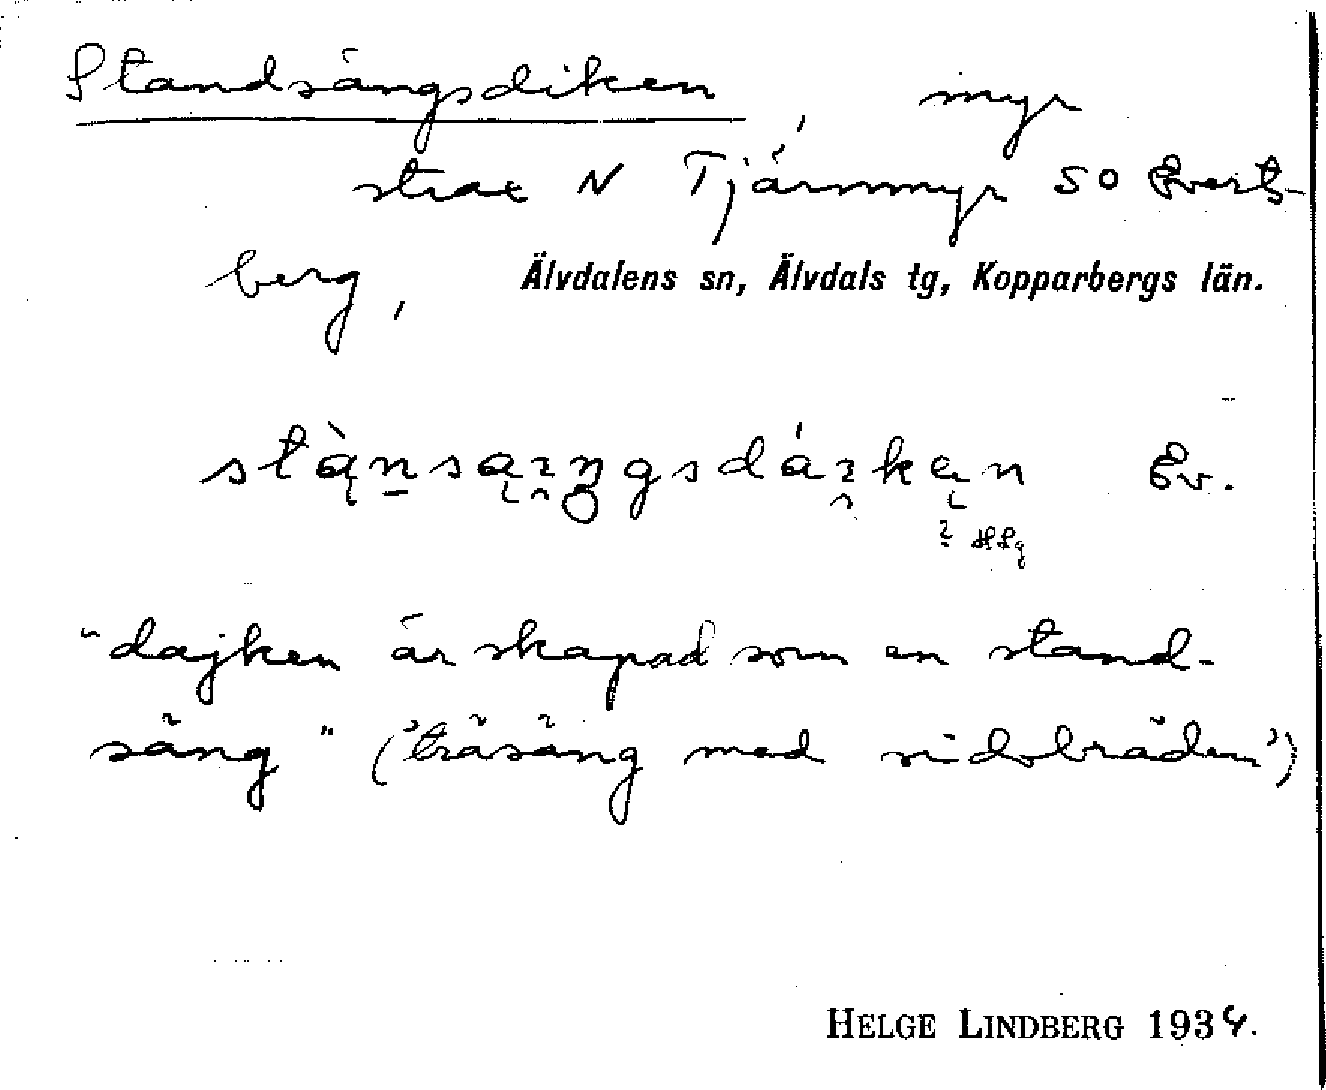 Standsängsdiken, myr
strax N Tjärnmyr SO Everts-
berg,
Älvdalens sn, Älvdals tg, Kopparbergs län.
Ev.
"dajken är skapad som en stand-
säng" ('träsäng med sidobräden')
HELGE LINDBERG 1934.